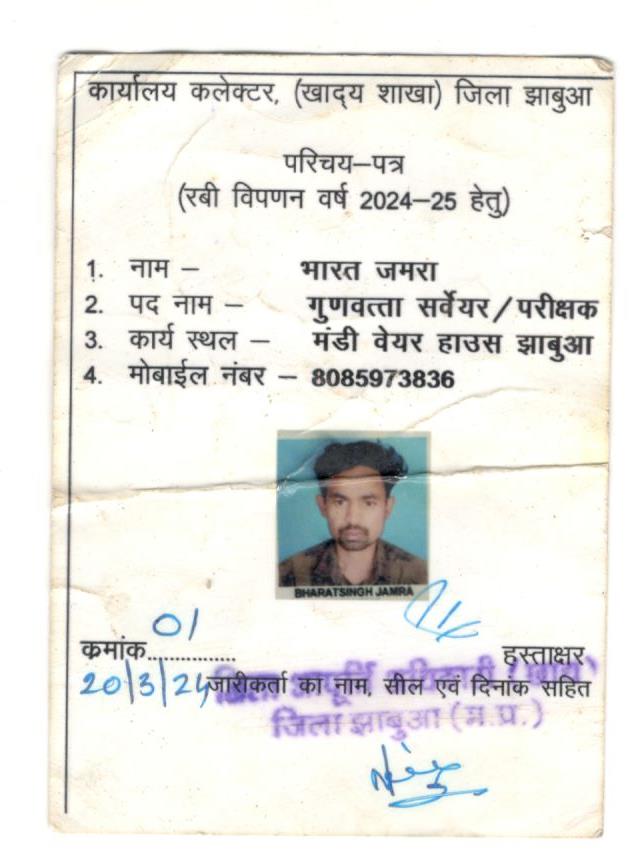 कार्यालय कलेक्टर, (खाद्य शाखा) जिला झाबुआ
परिचय–पत्र
(रबी विपणन वर्ष 2024–25 हेतु)
1. नाम – भारत जमरा
2. पद नाम – गुणवत्ता सर्वेयर/परीक्षक
3. कार्य स्थल – मंडी वेयर हाउस झाबुआ
4. मोबाईल नंबर – 8085973836
BHARATSINGH JAMRA
क्रमांक............... 01
हस्ताक्षर
20/3/24
जारीकर्ता का नाम, सील एवं दिनांक सहित
जिला आपूर्ति अधिकारी
जिला झाबुआ (म.प्र.)